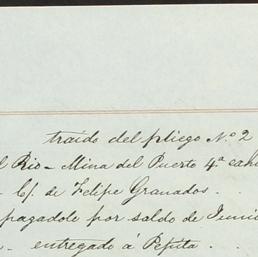 traido del pliego Nº 2
l Rio - Mina del Puerto 4ª
- C/. de Felipe Granados.
pagadole por saldo de Junio
- entregado á Pepita.